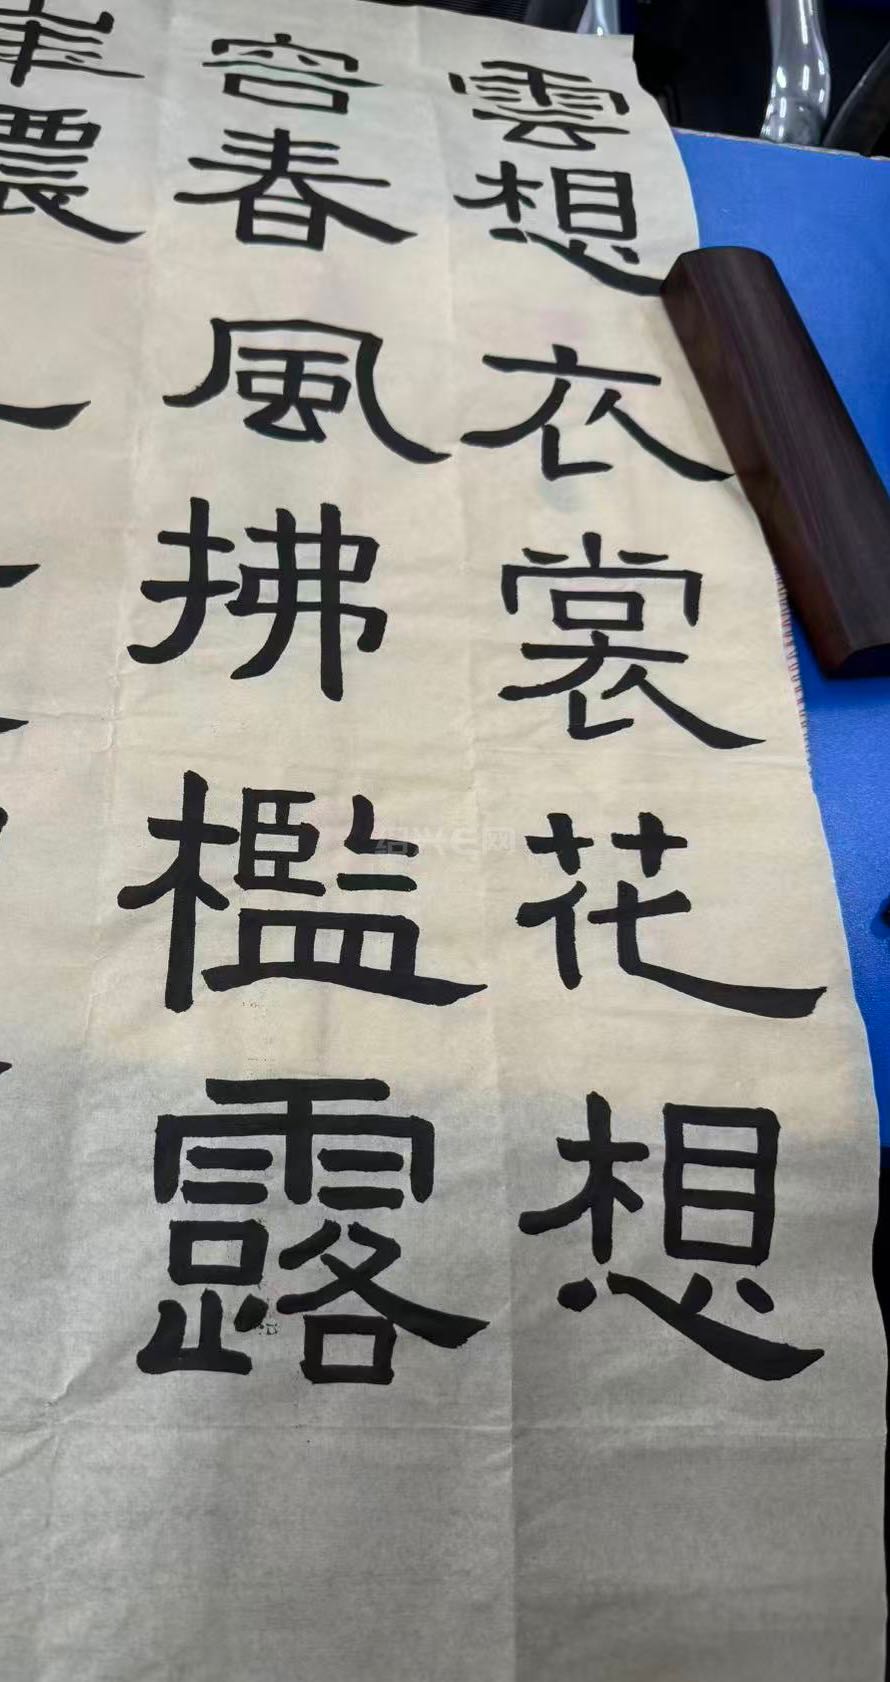 雲想衣裳花想
容春風拂檻露
華濃
绍兴E网